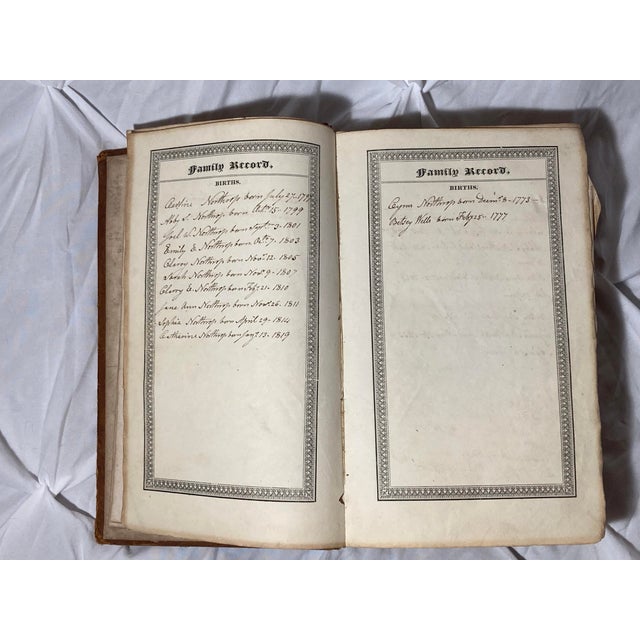 Family Record,
BIRTHS.
Northrop born July 27-
Abby S. Northrop born 15-1799
Joel W. Northrop born Sept. 3-1801
Emily Northrop born Oct. 7-1803
Northrop born Nov. 12-1805
Sarah Northrop born Nov. 9-1807
E. Northrop born Feby. 21-1810
Jane Ann Northrop born Nov. 26-1811
Sophia Northrop born April 29-1814
Catharine Northrop born 13-1819
Family Record,
BIRTHS.
Northrop born Decemr. 8-1773-
Betsey Wells born Feby 25-1777